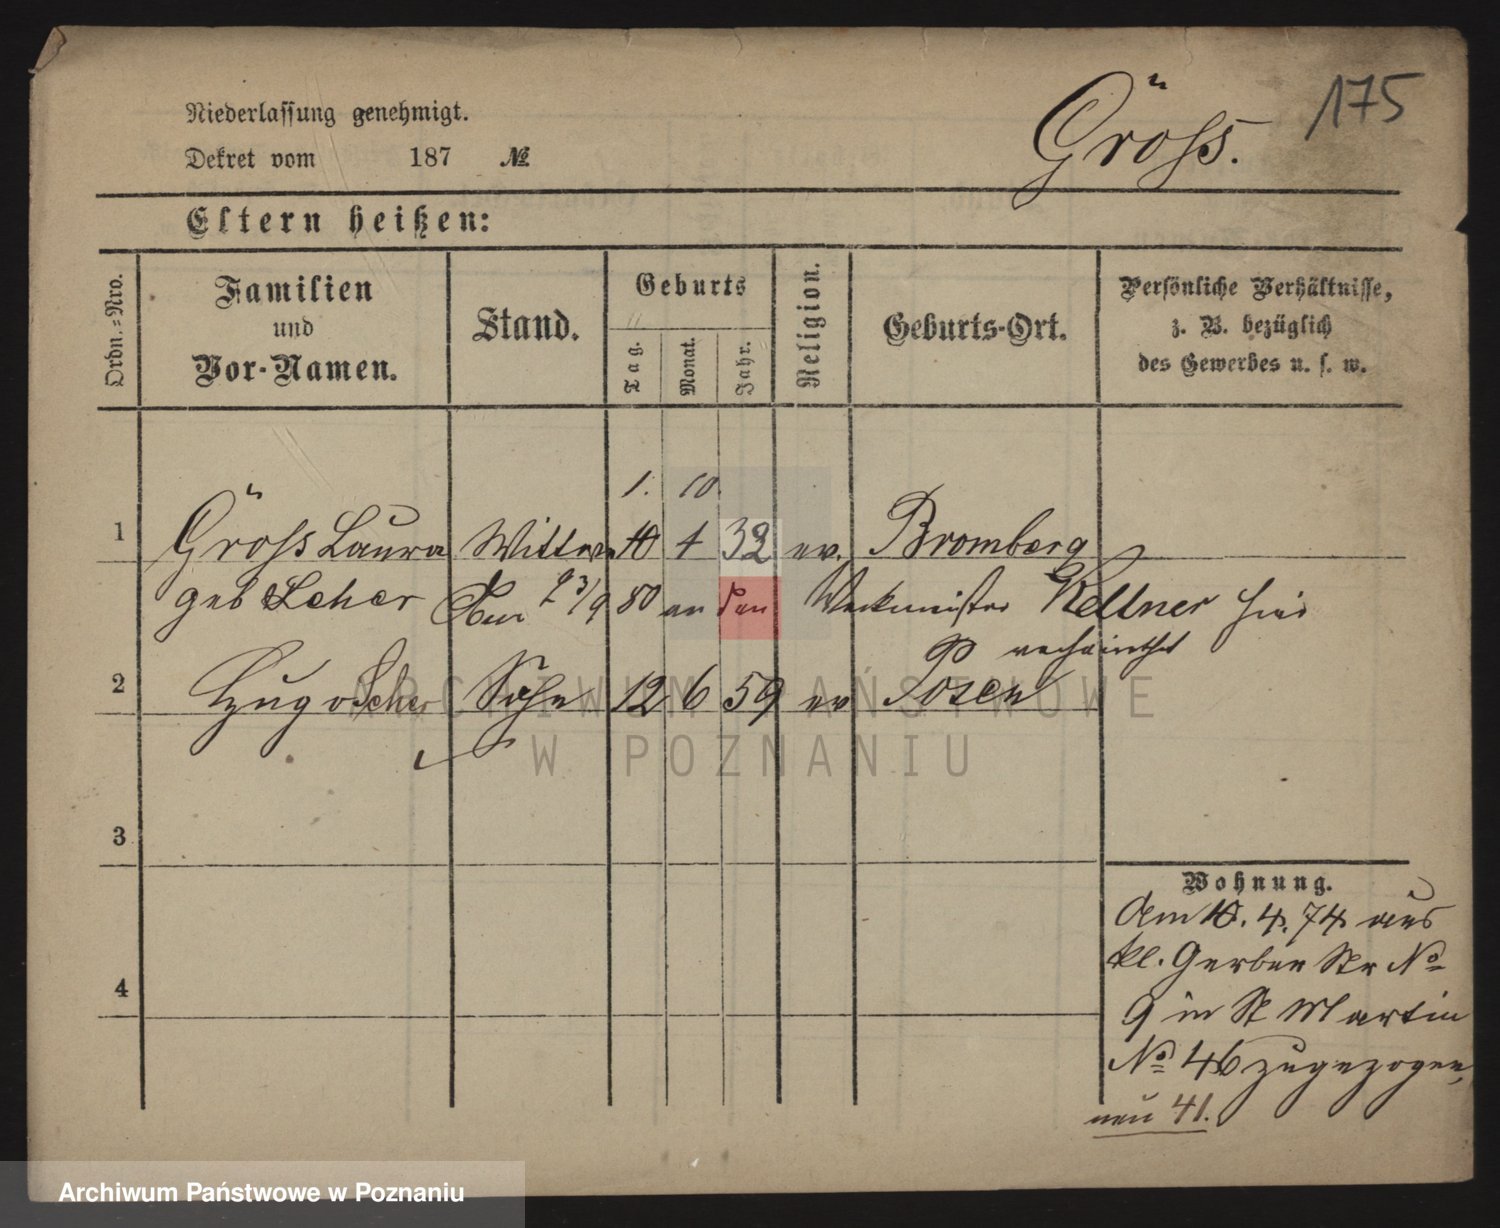 175
Größ.
Niederlassung genehmigt.
Dekret vom 187 №
Eltern heißen:
Ordn.-Nro.
Familien
und
Vor-Namen.
Stand.
Geburts
Tag.
Monat.
Jahr.
Religion.
Geburts-Ort.
Persönliche Verhältnisse,
z. B. bezüglich
des Gewerbes u. s. w.
1. 10.
1 Größ Laura Wittwe 10 4 32 ev. Bromberg
geb 23/9 80 an den Werkmeister Kellner hier
verheirathet
2 Hugo Sohn 12 6 59 ev Posen
3
4
Wohnung.
Am 10. 4. 74 aus
kl. Gerber Str No
9 in St Martin
No 46 zugezogen,
neu 41.
ARCHIWUM PAŃSTWOWE
W POZNANIU
Archiwum Państwowe w Poznaniu